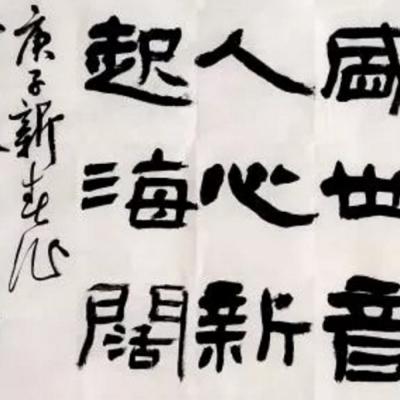 盛世音
人心新
起海阔
庚子新春